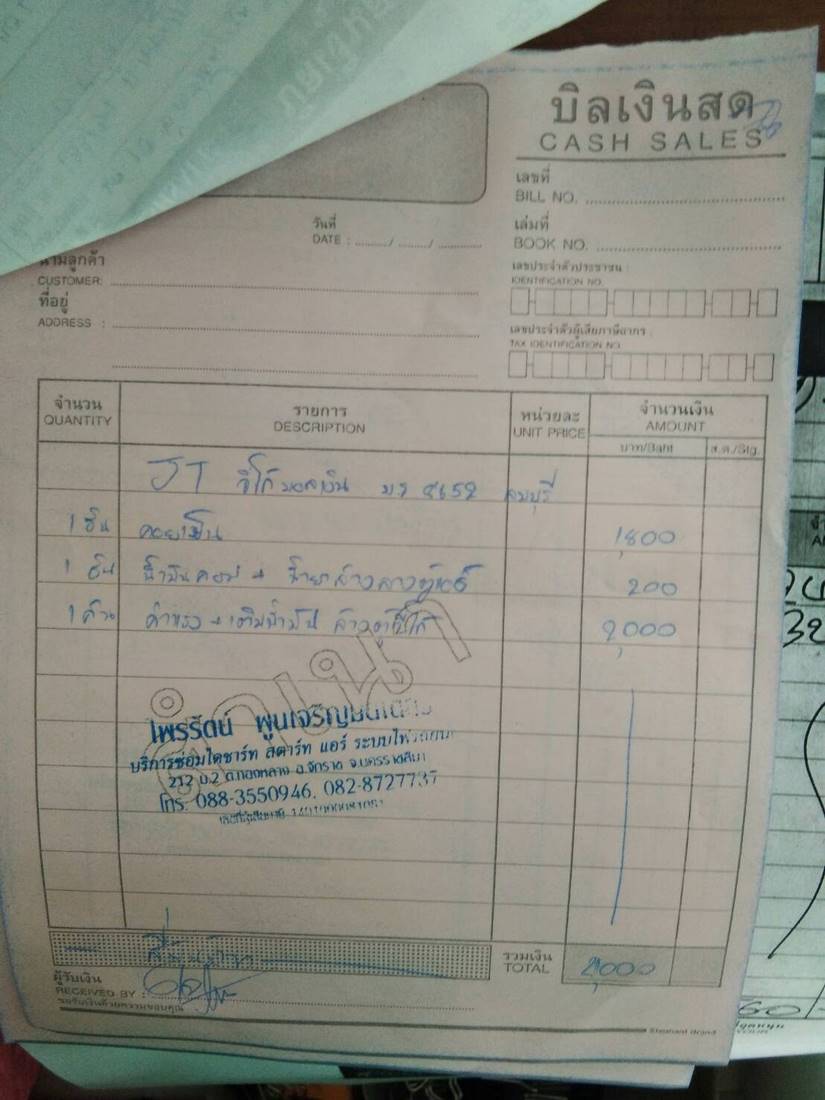 บิลเงินสด
CASH SALES
เลขที่
BILL NO.
วันที่
DATE : ......../......../........
เล่มที่
BOOK NO.
นามลูกค้า
CUSTOMER:
เลขประจำตัวประชาชน :
IDENTIFICATION NO.
ที่อยู่
ADDRESS :
เลขประจำตัวผู้เสียภาษีอากร :
TAX IDENTIFICATION NO
จำนวน รายการ หน่วยละ จำนวนเงิน
QUANTITY DESCRIPTION UNIT PRICE AMOUNT
บาท/Baht ส.ต./Stg.
JT ลพบุรี
1 ชิ้น คอยเย็น 1,800
1 ชิ้น 200
1 ค่าแรง + เติมน้ำมัน 2,000
สำเนา
ไพรรัตน์ พูนเจริญ
บริการซ่อมไดชาร์ท สตาร์ท แอร์ ระบบไฟรถยนต์
212 ม.2 อ.จักราช จ.นครราชสีมา
โทร. 088-3550946, 082-8727737
สี่พันบาท
รวมเงิน
TOTAL 4,000
ผู้รับเงิน
RECEIVED BY :
ขอรับเงินด้วยความขอบคุณ
Elephant Brand